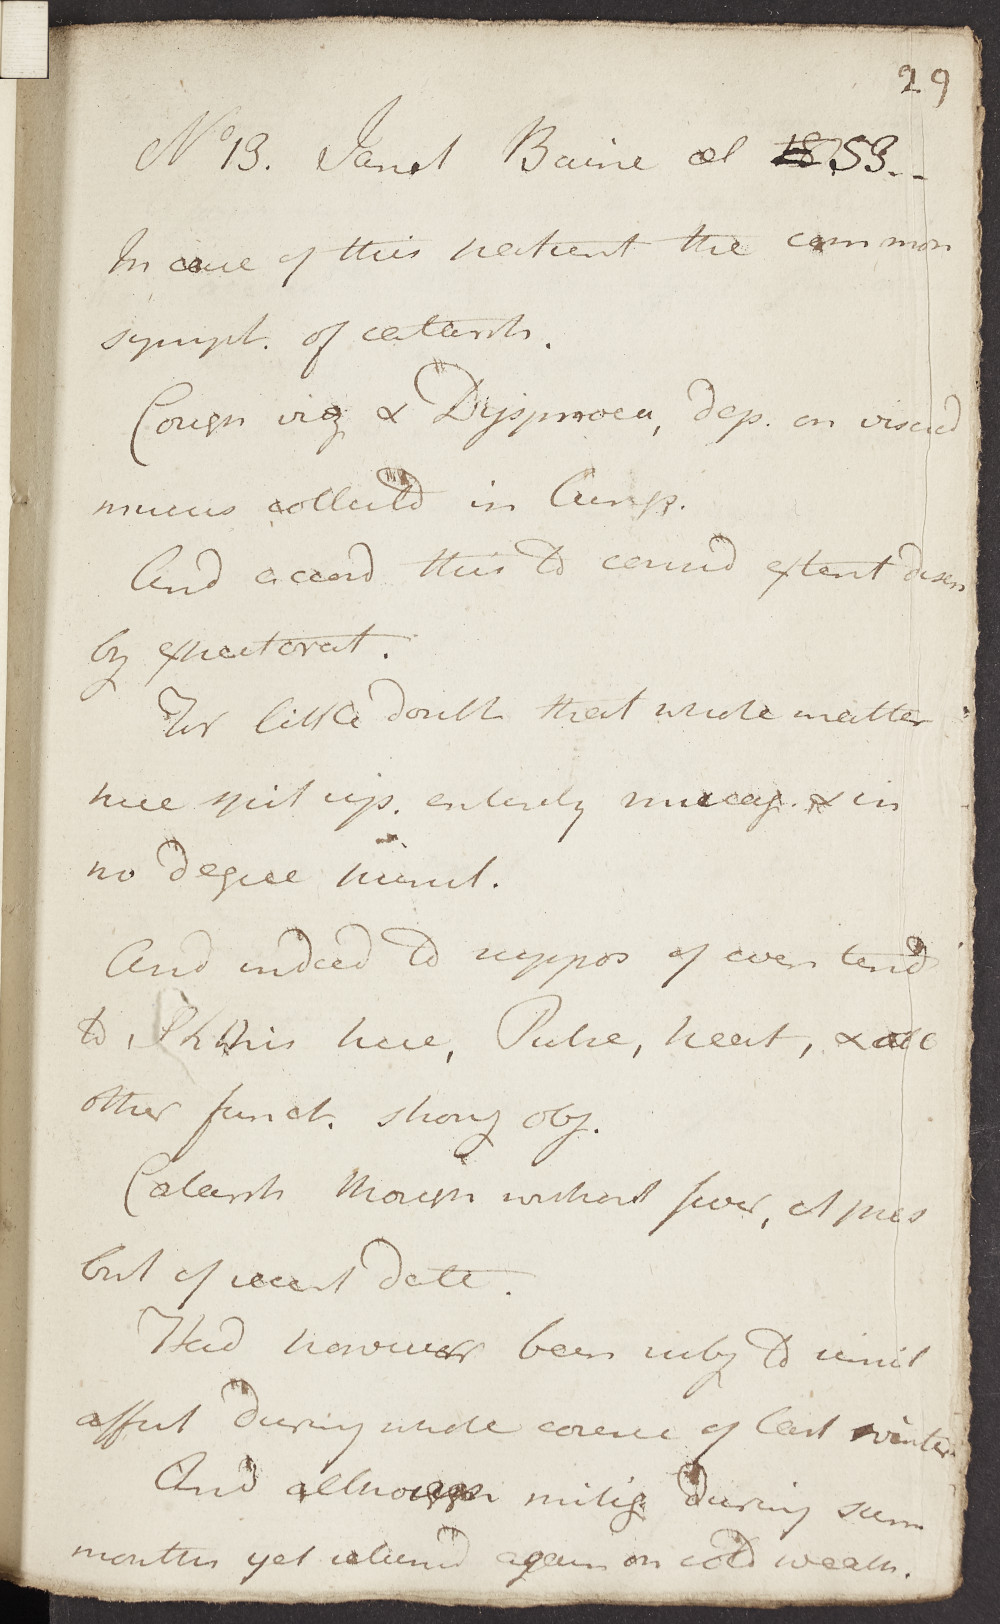 29
No 13. Janet Baine aet 18 53.
In case of this patient the common
sympt. of catarrh.
Cough viz & Dyspnoea, dep. on viscid
mucus collected in Lungs.
And accord this to consid extent disch
by expectorat.
For little doubt that whole matter
here spit up. entirely mucag. & in
no degree purul.
And indeed to suppos of even tend
to Phthis here, Pulse, heat, & all
other funct. strong obj.
Catarrh though without fever, at pres
but of recent date.
Had however been subj to simil
affect during whole course of last winter
And although mitig. during summ
months yet returnd again on cold weath.